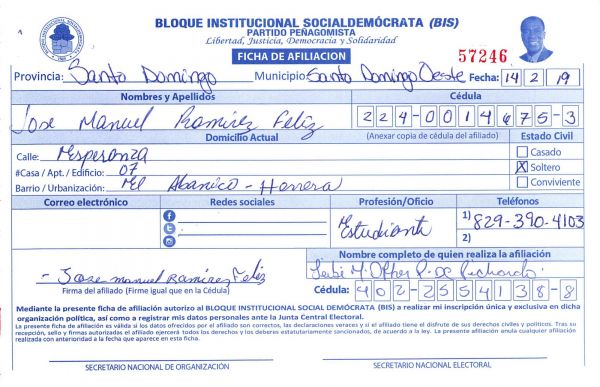 BLOQUE INSTITUCIONAL SOCIALDEMÓCRATA (BIS)
PARTIDO PEÑAGOMISTA
Libertad, Justicia, Democracia y Solidaridad
FICHA DE AFILIACION
57246
Provincia: Santo Domingo Municipio: Santo Domingo Oeste Fecha: 14 2 19
Nombres y Apellidos Cédula
Jose Manuel Ramirez Feliz 224-0014675-3
Domicilio Actual (Anexar copia de cédula del afiliado) Estado Civil
Calle: Esperanza Casado
#Casa / Apt. / Edificio: 07 X Soltero
Barrio / Urbanización: El Abanico - Herrera Conviviente
Correo electrónico Redes sociales Profesión/Oficio Teléfonos
Estudiante 1) 829-390-4103
2)
Nombre completo de quien realiza la afiliación
- Jose manuel Ramirez Feliz
Firma del afiliado (Firme igual que en la Cédula) Cédula: 402-2554138-8
Mediante la presente ficha de afiliación autorizo al BLOQUE INSTITUCIONAL SOCIAL DEMÓCRATA (BIS) a realizar mi inscripción única y exclusiva en dicha
organización política, así como a registrar mis datos personales ante la Junta Central Electoral.
La presente ficha de afiliación es válida si los datos ofrecidos por el afiliado son correctos, las declaraciones veraces y si el afiliado tiene el disfrute de sus derechos civiles y políticos. Tras su
recepción, sello y firmas autorizadas el afiliado ejercerá todos los derechos y los deberes estatutariamente sancionados, de acuerdo a la ley. La presente afiliación anula cualquier afiliación
realizada con anterioridad a la fecha que aparece en esta ficha.
SECRETARIO NACIONAL DE ORGANIZACIÓN SECRETARIO NACIONAL ELECTORAL